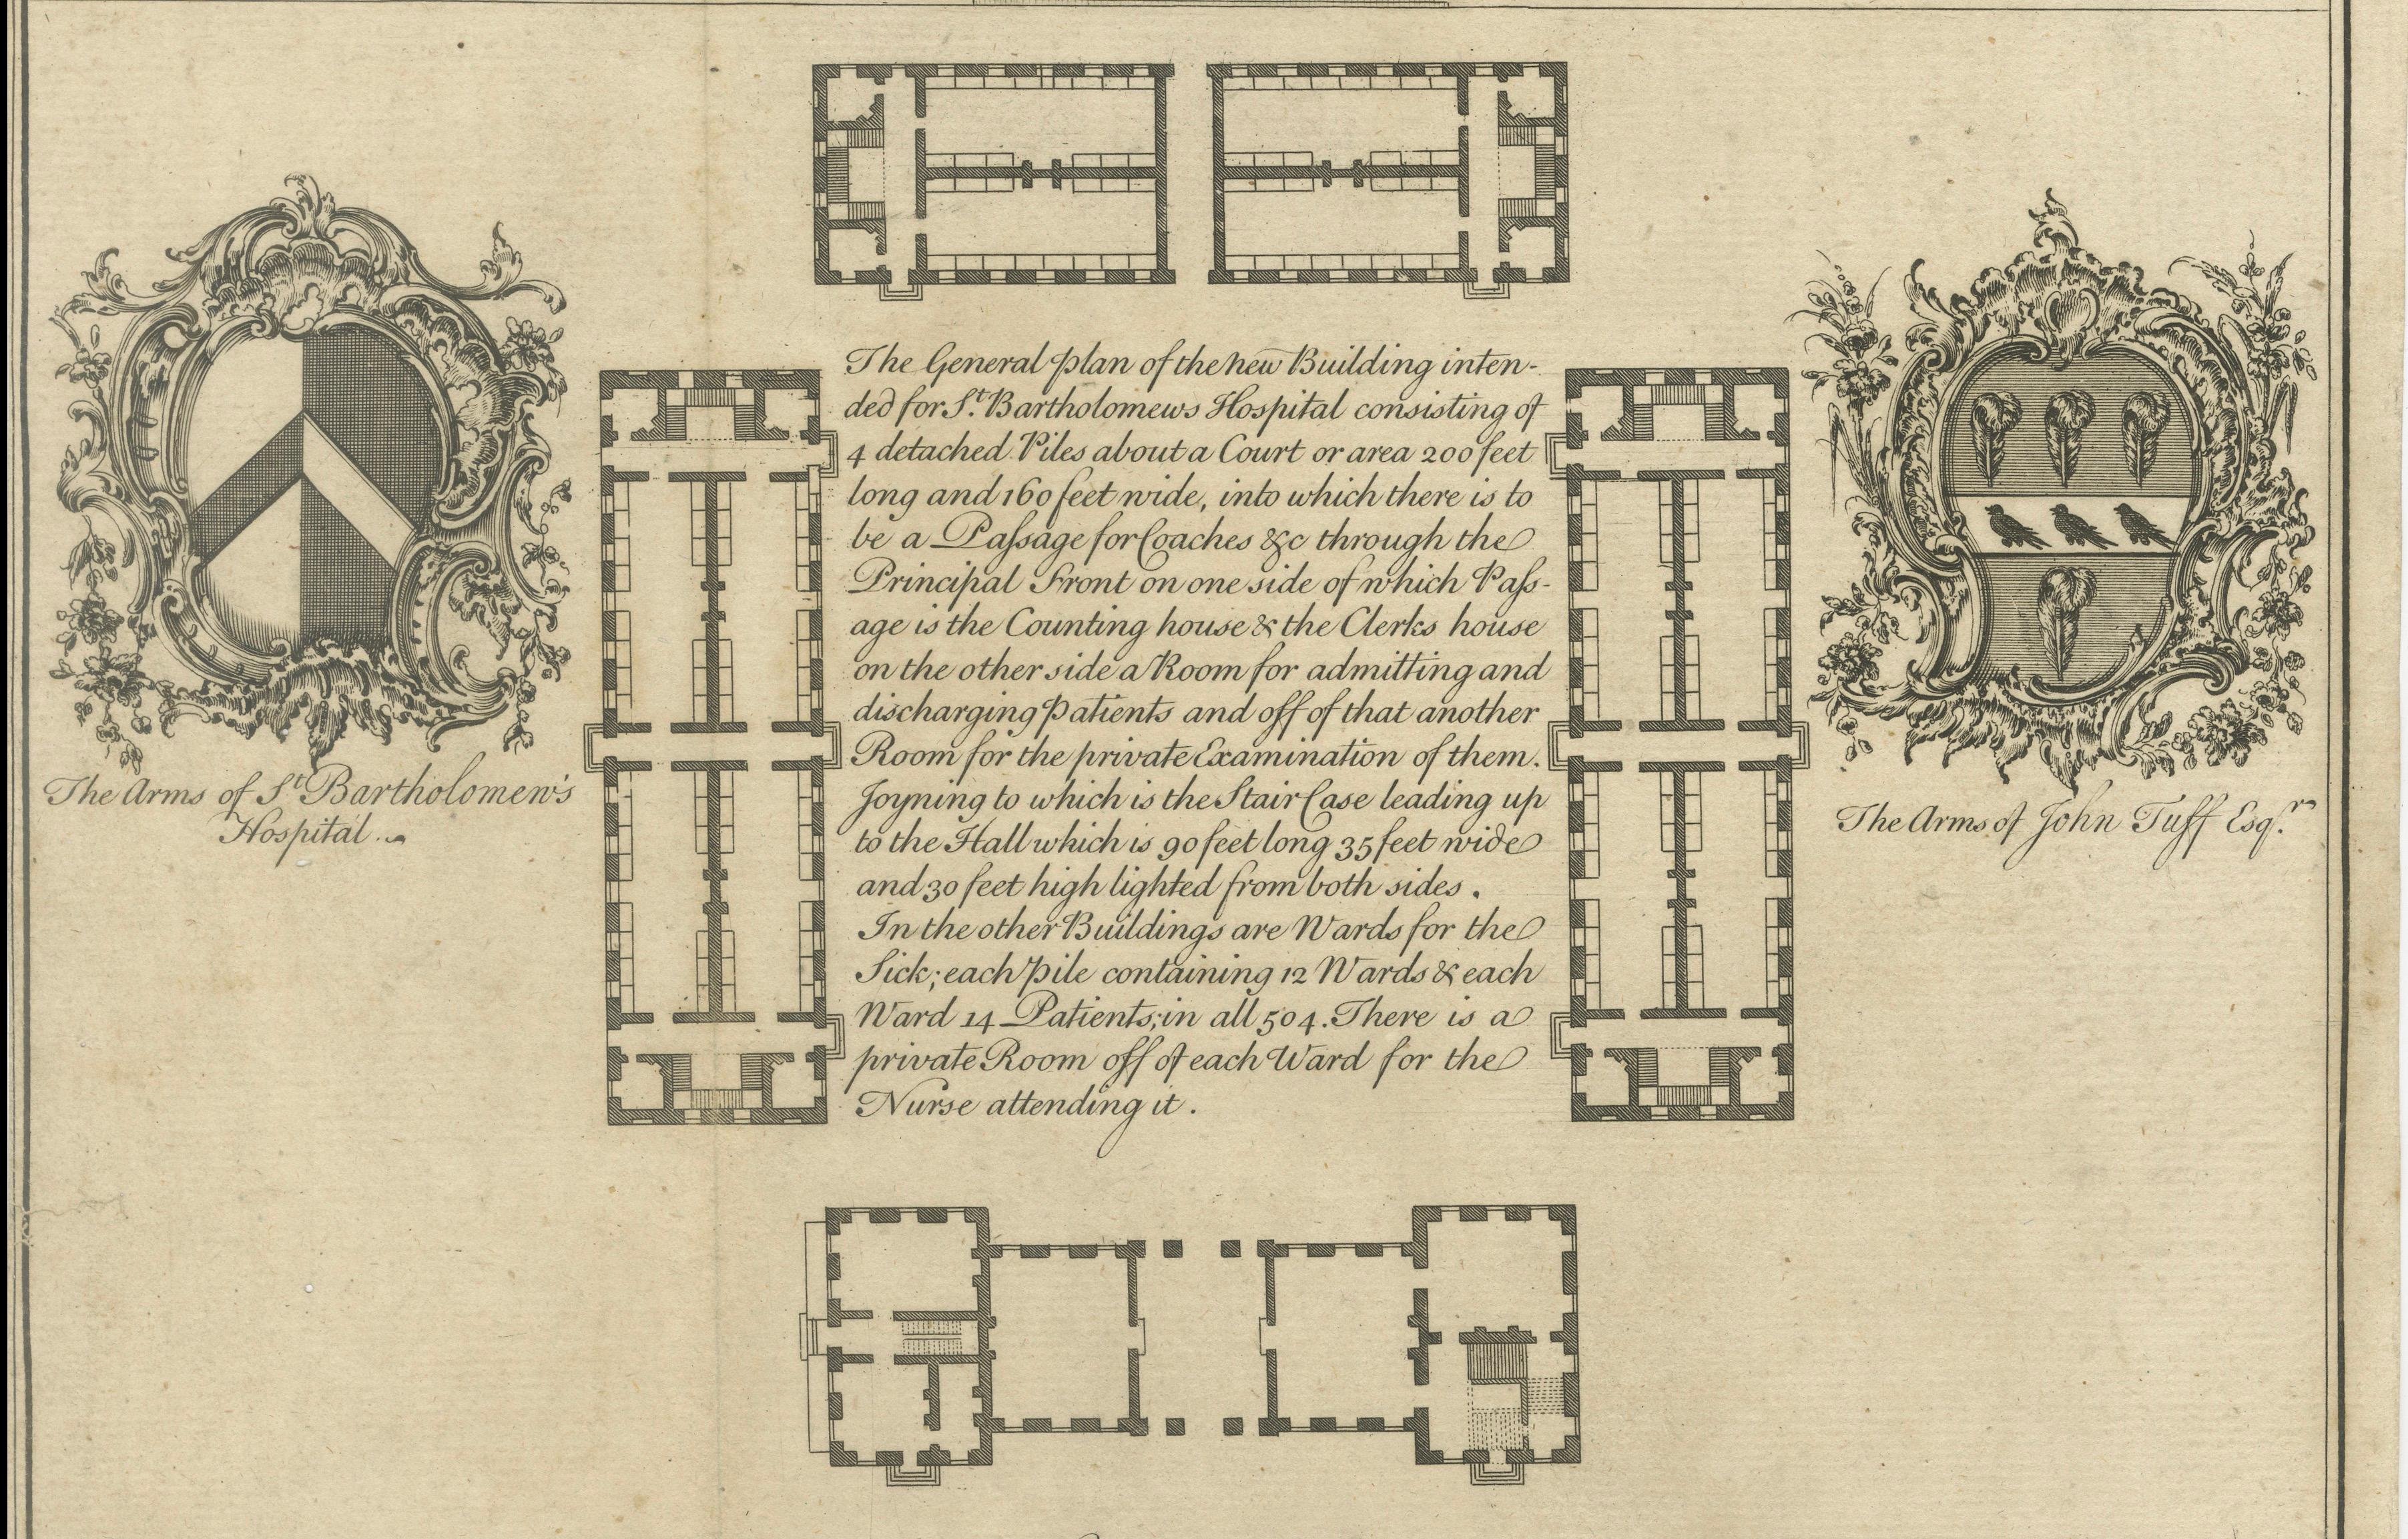 The General plan of the new Building inten-
ded for St. Bartholomews Hospital consisting of
4 detached Piles about a Court or area 200 feet
long and 160 feet wide, into which there is to
be a Paſsage for Coaches &c through the
Principal Front on one side of which Paſs-
age is the Counting house & the Clerks house
on the other side a Room for admitting and
discharging Patients and off of that another
Room for the private Examination of them.
Joyning to which is the Stair Case leading up
to the Hall which is 90 feet long 35 feet wide
and 30 feet high lighted from both sides.
In the other Buildings are Wards for the
Sick; each Pile containing 12 Wards & each
Ward 14 Patients; in all 504. There is a
private Room off of each Ward for the
Nurse attending it.
The Arms of St Bartholomew's
Hospital.
The Arms of John Tuff Esqr.